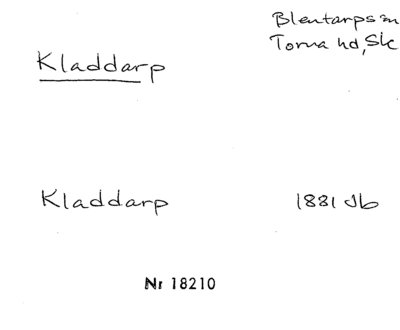 Blentarps sn
Torna hd, Sk
Kladdarp
Kladdarp 1881 Jb
Nr 18210